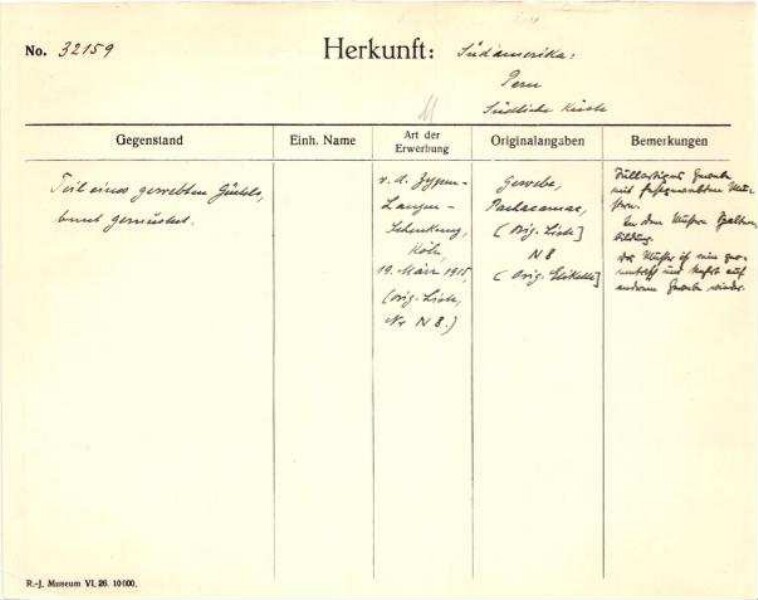 No. 32159
Herkunft: Südamerika:
Peru
Südliche Küste
Gegenstand
Einh. Name
Art der
Erwerbung
Originalangaben
Bemerkungen
Teil eines gewebten Gürtels,
bunt gemustert.
v. d. Zypen-
Langen-
Schenkung,
Köln,
19. März 1915,
(orig. Liste,
Nr N 8.)
Gewebe,
Pachacamac,
( Orig. Liste]
N 8
( Orig. Etikette]
Gewebe
mit Mu-
stern.
In den Mustern
bildung.
Das Muster ist rein geo-
metrisch und kehrt auf
anderen Geweben wieder.
R.-J. Museum VI. 26. 10000.